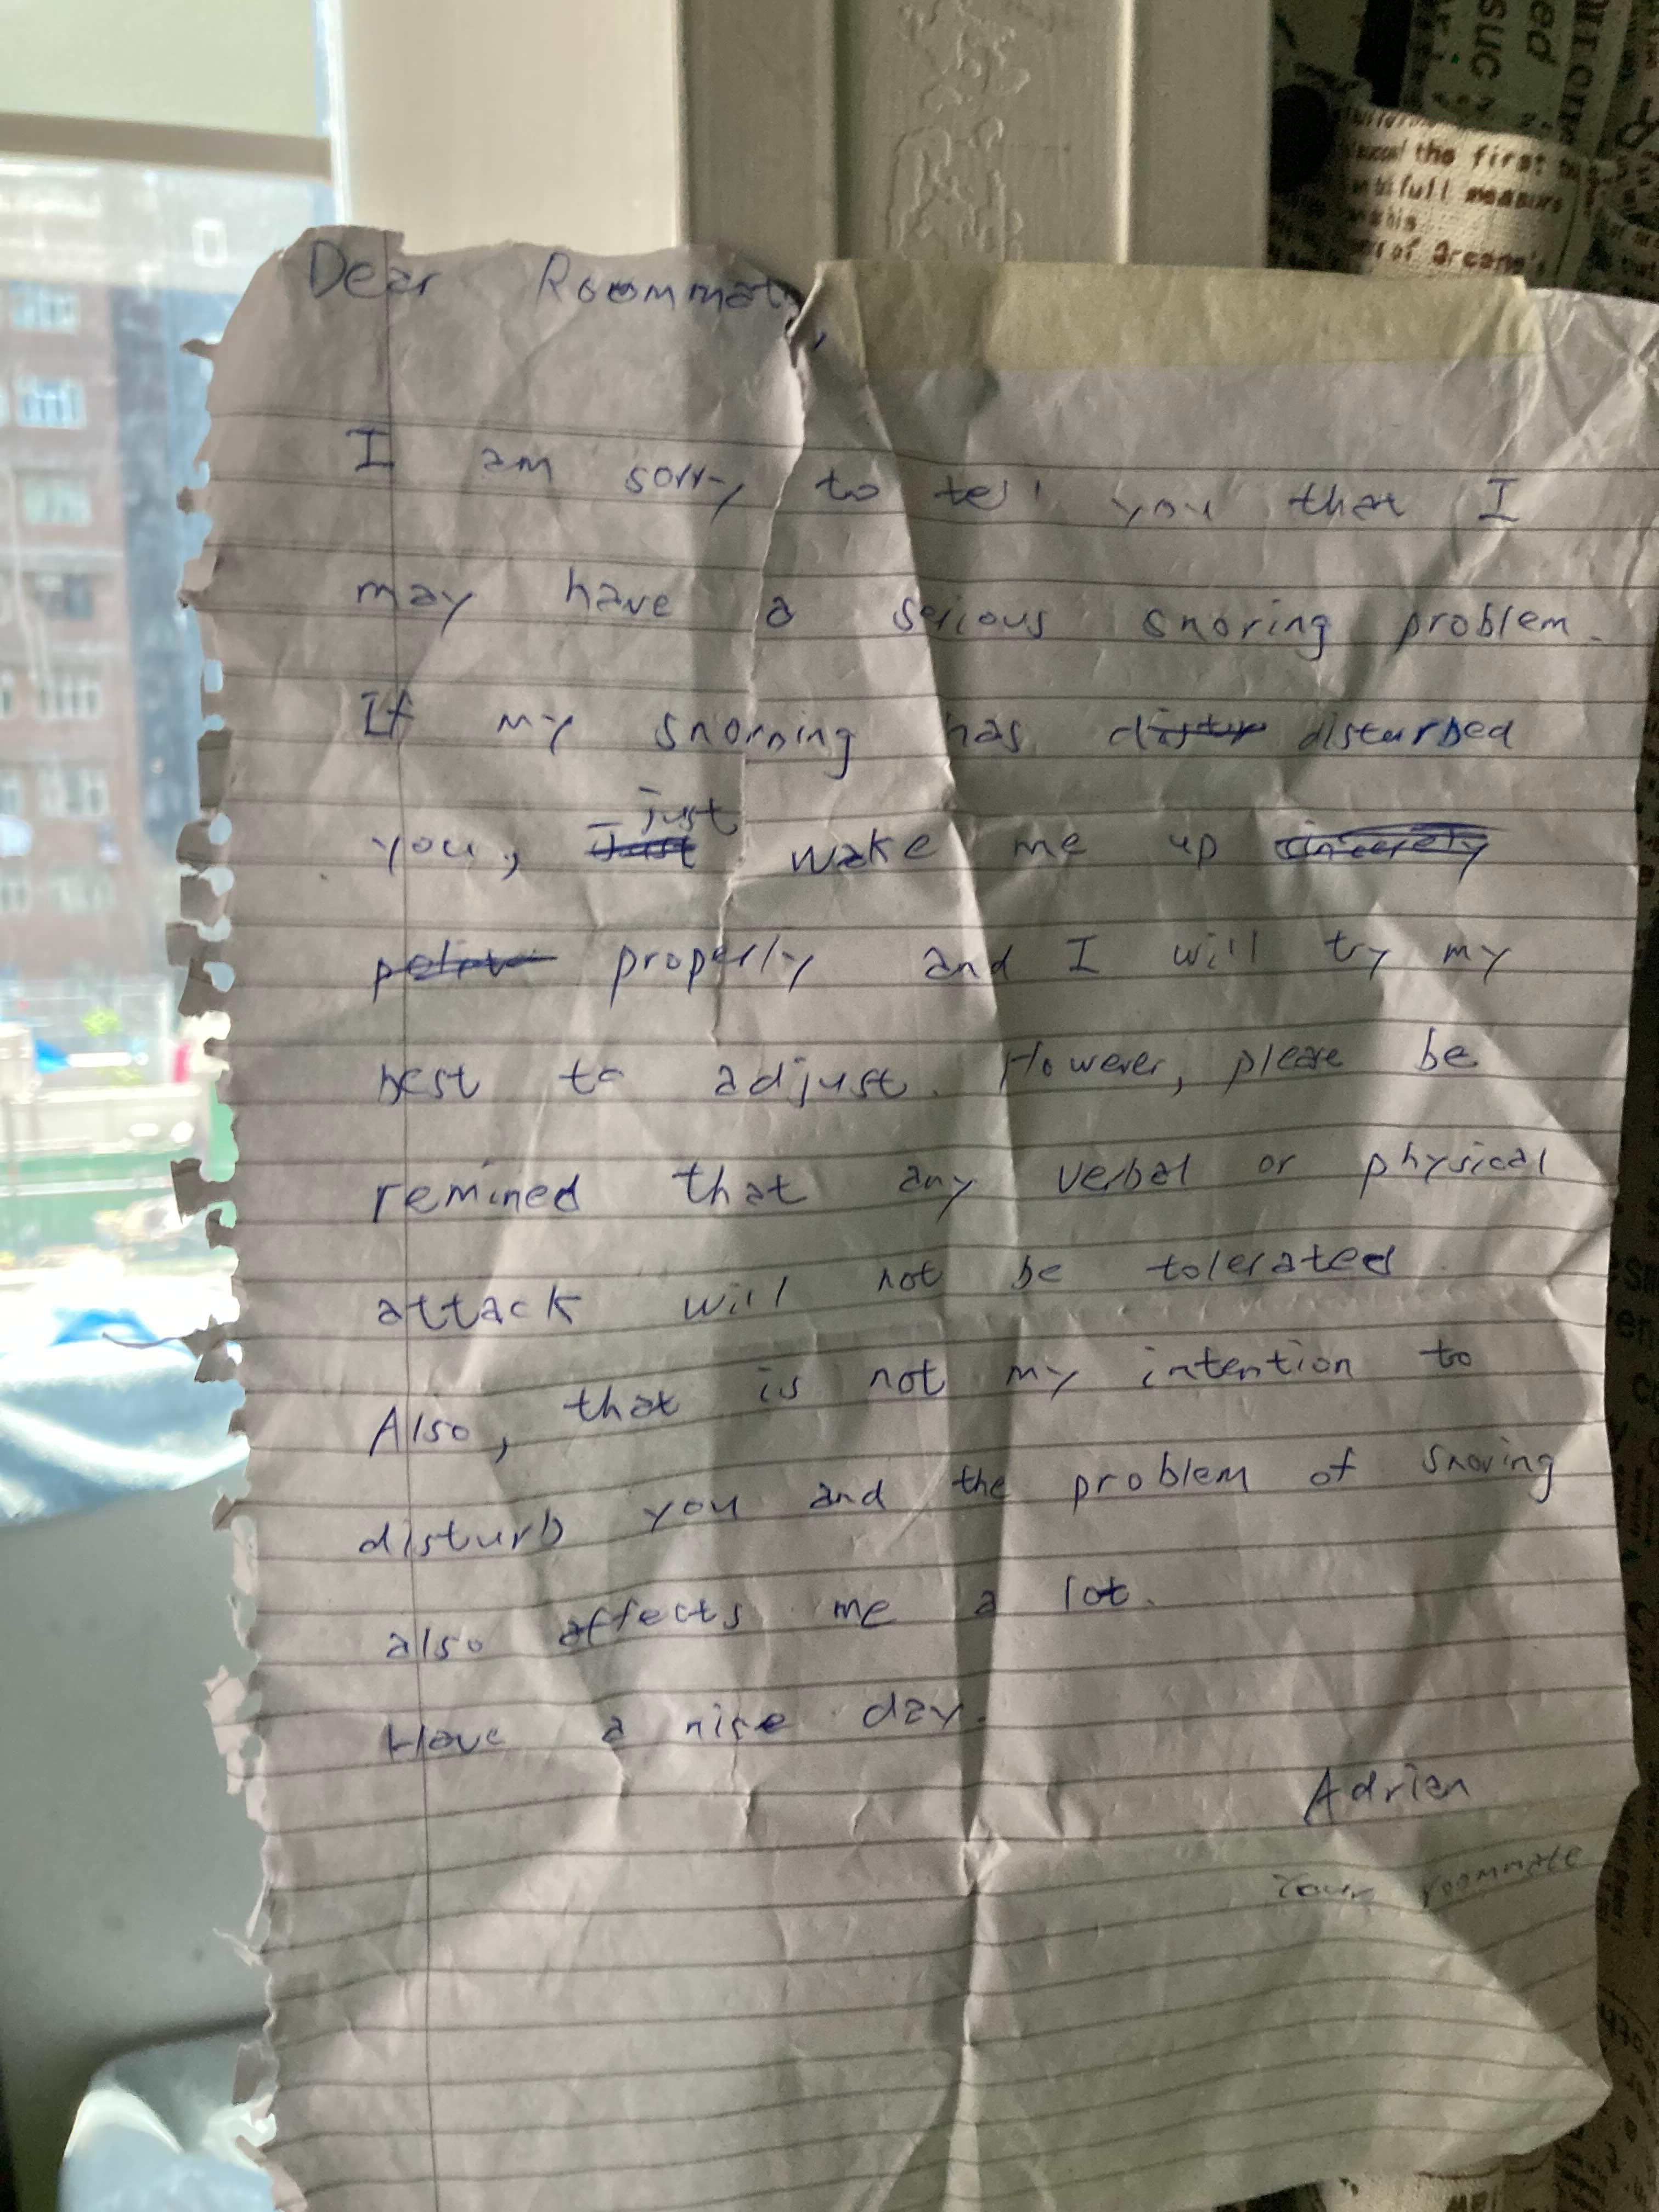 Dear Roommate,
I am sorry to tell you that I
may have a serious snoring problem.
If my snorning has distur disturbed
just
you, Just wake me up sincerely
polite properly and I will try my
best to adjust. However, please be
remined that any verbal or physical
attack will not be tolerated.
Also, that is not my intention to
disturb you and the problem of snoring
also affects me a lot.
Have a nice day.
Adrian
Your roommate
the first
full measure
of Arcane's